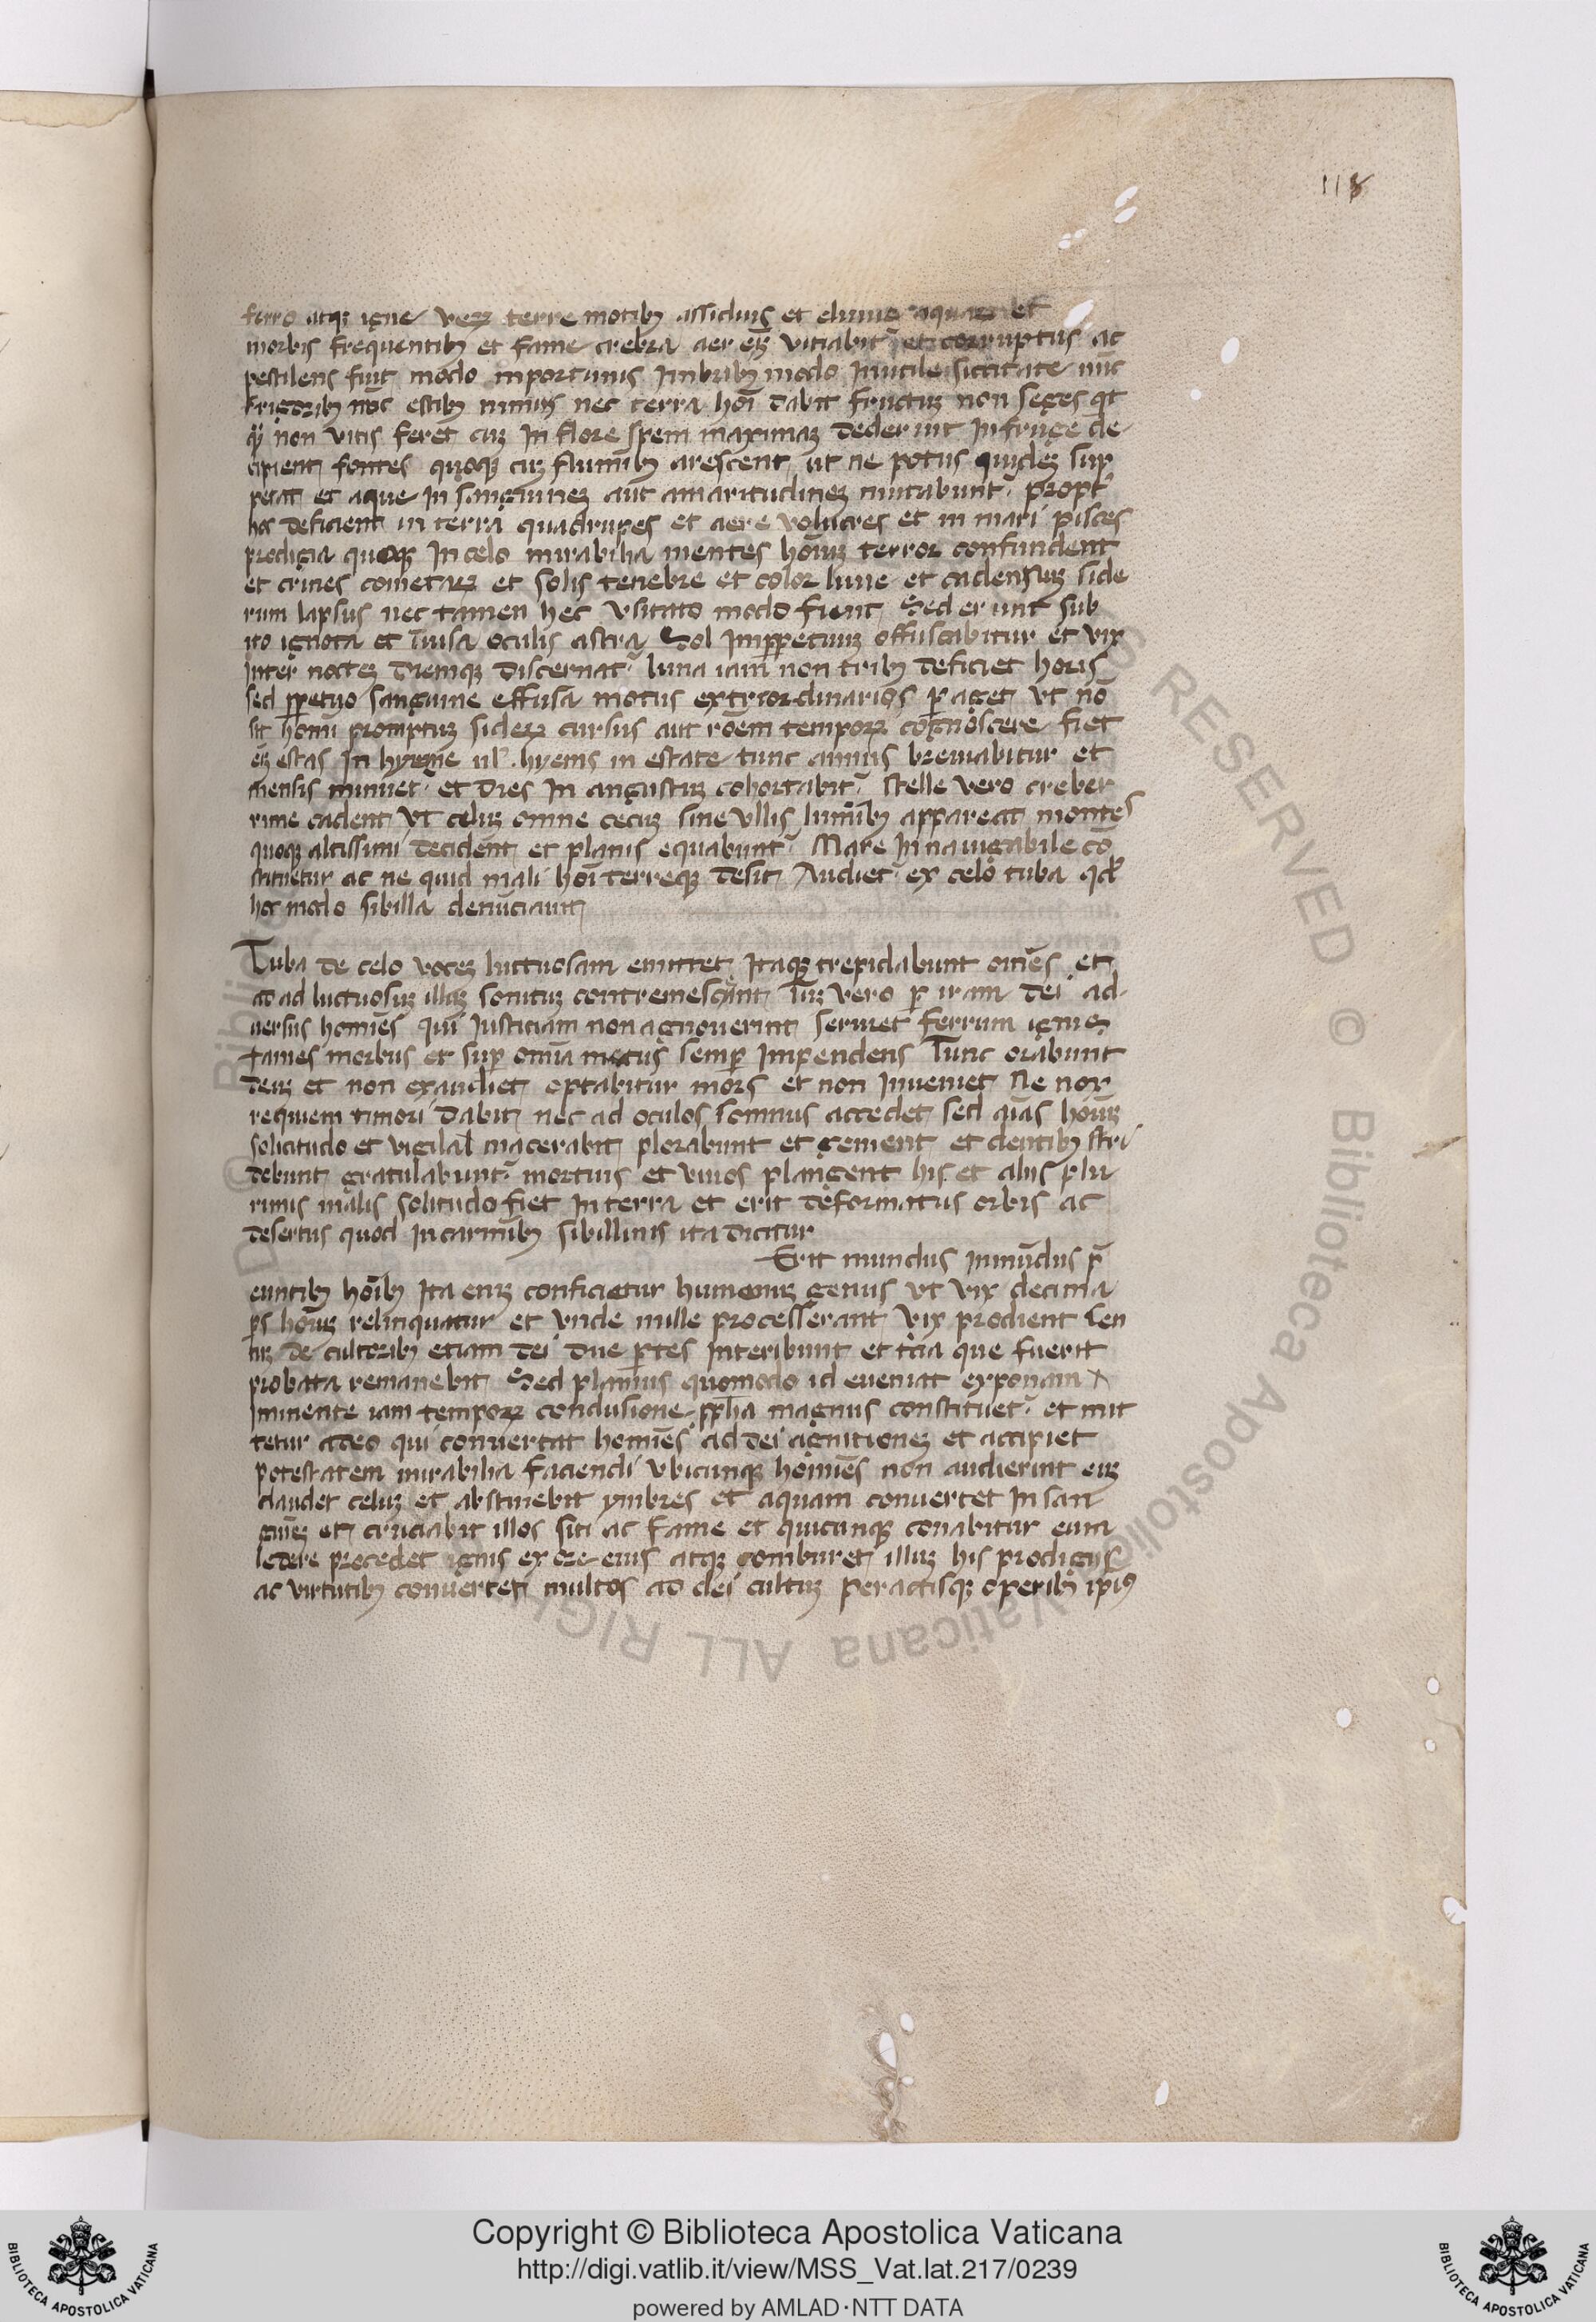 118
ferro atqꝫ igne veꝝ terre motibꝫ assiduis et eluuio aquaꝝ et
morbis frequentibꝫ et fame crebra aer em̄ vitiabit᷑ et corruptus ac
pestilens fiet modo inportunis Jmbribꝫ modo Jnutile siccitate nūc
frigoribꝫ nūc estibꝫ nimijs nec terra hoī dabit fructuꝫ non seges
non vitis feret cuꝫ In flore spem maximaꝫ dederint In fruge de
cipient fontes quoqꝫ cuꝫ flumībꝫ arescent ut ne potus quideꝫ sup
petat et aque In sanguineꝫ aut amaritudineꝫ mutabunt᷑ propt᷑
hec deficient in terra quadrupes et aere volucres et in mari pisces
prodigia quoqꝫ In celo mirabilia mentes hoīuꝫ terror confundent
et crines cometaꝝ et solis tenebre et color lune et cadentiuꝫ side
rum lapsus nec tamen hec vsitato modo fient Sed erunt sub
ito ignota et īuisa oculis astra Sol Imꝑpetuuꝫ offuscabitur et vix
Inter nocteꝫ diemqꝫ discernat᷑ luna iam non tribꝫ deficiet horis
sed ꝑpetuo sanguine effusa motus extriordinarios ꝑaget vt nō
sit homī promptuꝫ sideꝝ cursus aut rōem tempoꝝ cognoscere fiet
em̄ estas In hyeme ul᷑ hyems in estate tunc annus breuiabitur et
mensis minuet᷑ et dies In angustuꝫ cohortabit᷑ stelle vero creber
rime cadent vt celuꝫ omne cecuꝫ sine vllis lumībꝫ appareat montes
quoqꝫ altissimi decident et planis equabunt᷑ Mare In nauigabile cō
stituetur ac ne quid mali hoī terreqꝫ desit Audiet᷑ ex celo tuba qd᷑
hoc modo sibilla denūciauit
Tuba de celo voceꝫ luctuosam emittet Itaqꝫ trepidabunt om̄es et
ad luctuosuꝫ illuꝫ sonituꝫ contremescent Tuꝫ vero ꝑ iram dei ad
versus homīes qui Justiciam non agnouerint seruiet ferrum ignis
fames morbus et suꝑ omīa metus semꝑ Impendens Tunc orabunt
deuꝫ et non exaudiet optabitur mors et non Inueniet Ne nox
requiem timori dabit nec ad oculos somnus accedet sed aīas hoīuꝫ
solicitudo et vigilal macerabit plorabunt et gement et dentibꝫ stri
debunt gratulabunt᷑ mortuis et viuos plangent his et alijs plu
rimis malis solitudo fiet In terra et erit deformatus orbis ac
desertus quod In carmībꝫ sibillinis ita dicitur
Erit mundus Inmūdus ꝑ
euntibꝫ hoībꝫ Ita enīꝫ conficietur humanuꝫ genus vt vix decima
ꝑs hoīuꝫ relinquatur et vnde mille processerant vix prodient cen
tuꝫ de cultoribꝫ etiam dei due ꝑtes Interibunt et tcīa que fuerit
probata remanebit Sed planius quomodo id eueniat exponam
Iminente iam tempoꝝ conclusione ꝓpħa magnus constituet᷑ et mit
tetur a deo qui conuertat homīes ad dei agnitioneꝫ et accipiet
potestatem mirabilia faciendi vbicunqꝫ homīes non audierint euꝫ
claudet celuꝫ et abstinebit ymbres et aquam conuertet In san
guīeꝫ et cruciabit illos siti ac fame et quicunqꝫ conabitur eum
ledere procedet ignis ex ore eius atqꝫ comburet illuꝫ his prodigijs
ac virtutibꝫ conuertet multos ad dei cultuꝫ peractisqꝫ operibꝫ ip̄iꝰ
© Biblioteca Apostolica Vaticana ALL RIGHTS RESERVED © Biblioteca Apostolica Vaticana ALL RIGHTS RESERVED
Copyright © Biblioteca Apostolica Vaticana
http://digi.vatlib.it/view/MSS_Vat.lat.217/0239
powered by AMLAD·NTT DATA
BIBLIOTECA APOSTOLICA VATICANA
BIBLIOTECA APOSTOLICA VATICANA